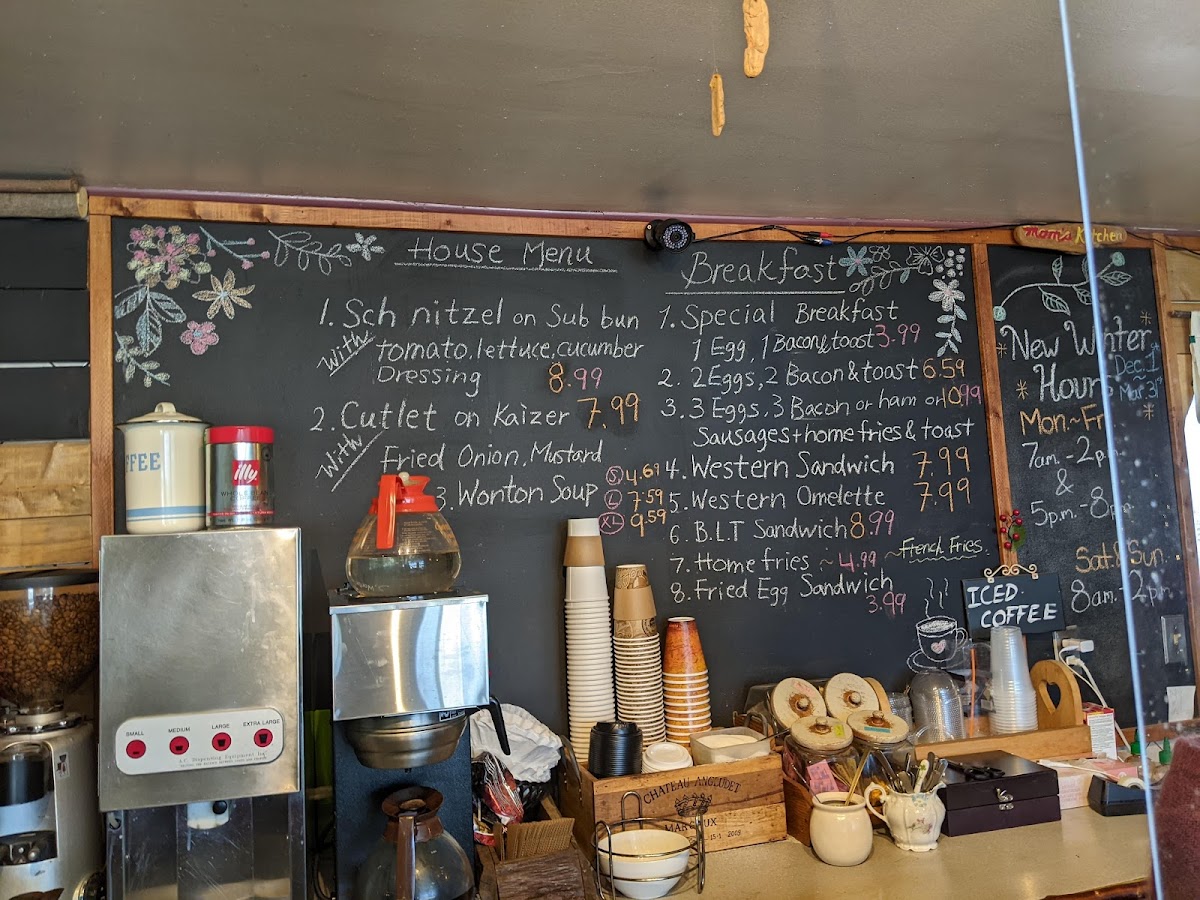 House Menu
1. Schnitzel on Sub bun
with tomato, lettuce, cucumber
Dressing 8.99
2. Cutlet on Kaizer 7.99
with Fried Onion, Mustard
3. Wonton Soup S 4.69
L 7.59
XL 9.59
Breakfast
1. Special Breakfast
1 Egg, 1 Bacon & toast 3.99
2. 2 Eggs, 2 Bacon & toast 6.59
3. 3 Eggs, 3 Bacon or ham or 10.99
Sausages + home fries & toast
4. Western Sandwich 7.99
5. Western Omelette 7.99
6. B.L.T Sandwich 8.99
7. Home fries ~ 4.99 ~French Fries
8. Fried Egg Sandwich
3.99
Mom's Kitchen
New Winter
Hour
Dec. 1
Mar. 31
Mon.~Fr
7am.-2p.m.
&
5p.m.-8p.m.
Sat. & Sun.
8am.-2pm.
ICED
COFFEE
FFEE
illy
SMALL
MEDIUM
LARGE
EXTRA LARGE
CHATEAU ANGLUDET
MARGAUX
2009